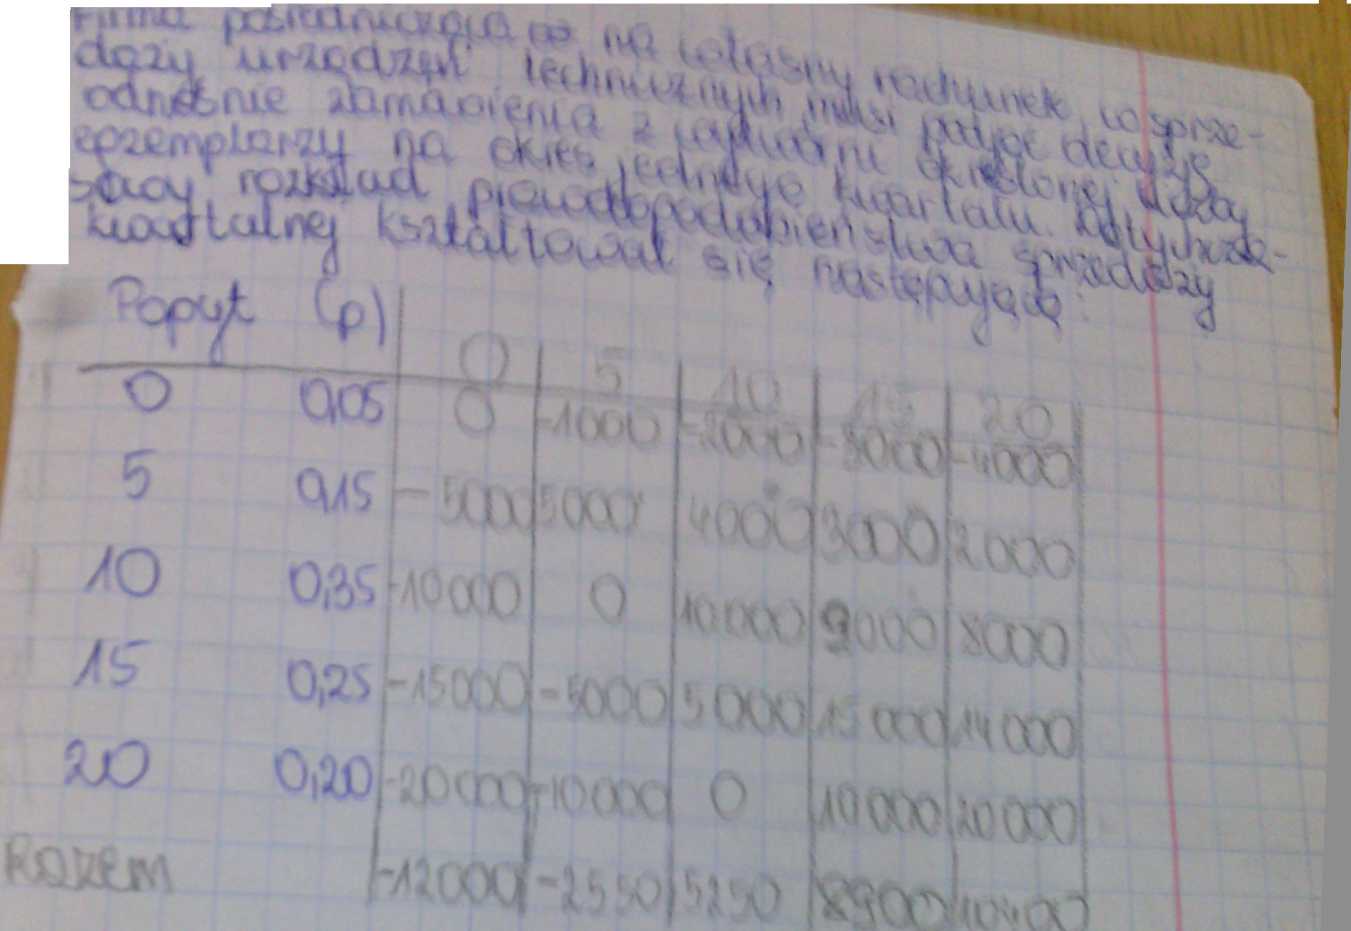 Firma pośrednicząca na własny rachunek w sprze-
daży urządzeń technicznych musi podjąć decyzję
odnośnie zamówienia z określonej liczby
egzemplarzy na okres jednego kwartału. Dotychcza-
sowy rozkład prawdopodobieństwa sprzedaży
kwartalnej kształtował się następująco:
Popyt (p) 0 5 10 15 20
0 0,05 0 -1000 -2000 -3000 -4000
5 0,15 -5000 5000 4000 3000 2000
10 0,35 -10000 0 10000 9000 8000
15 0,25 -15000 -5000 5000 15000 14000
20 0,20 -20000 -10000 0 10000 20000
Razem -12000 -2550 5250 8900 10400